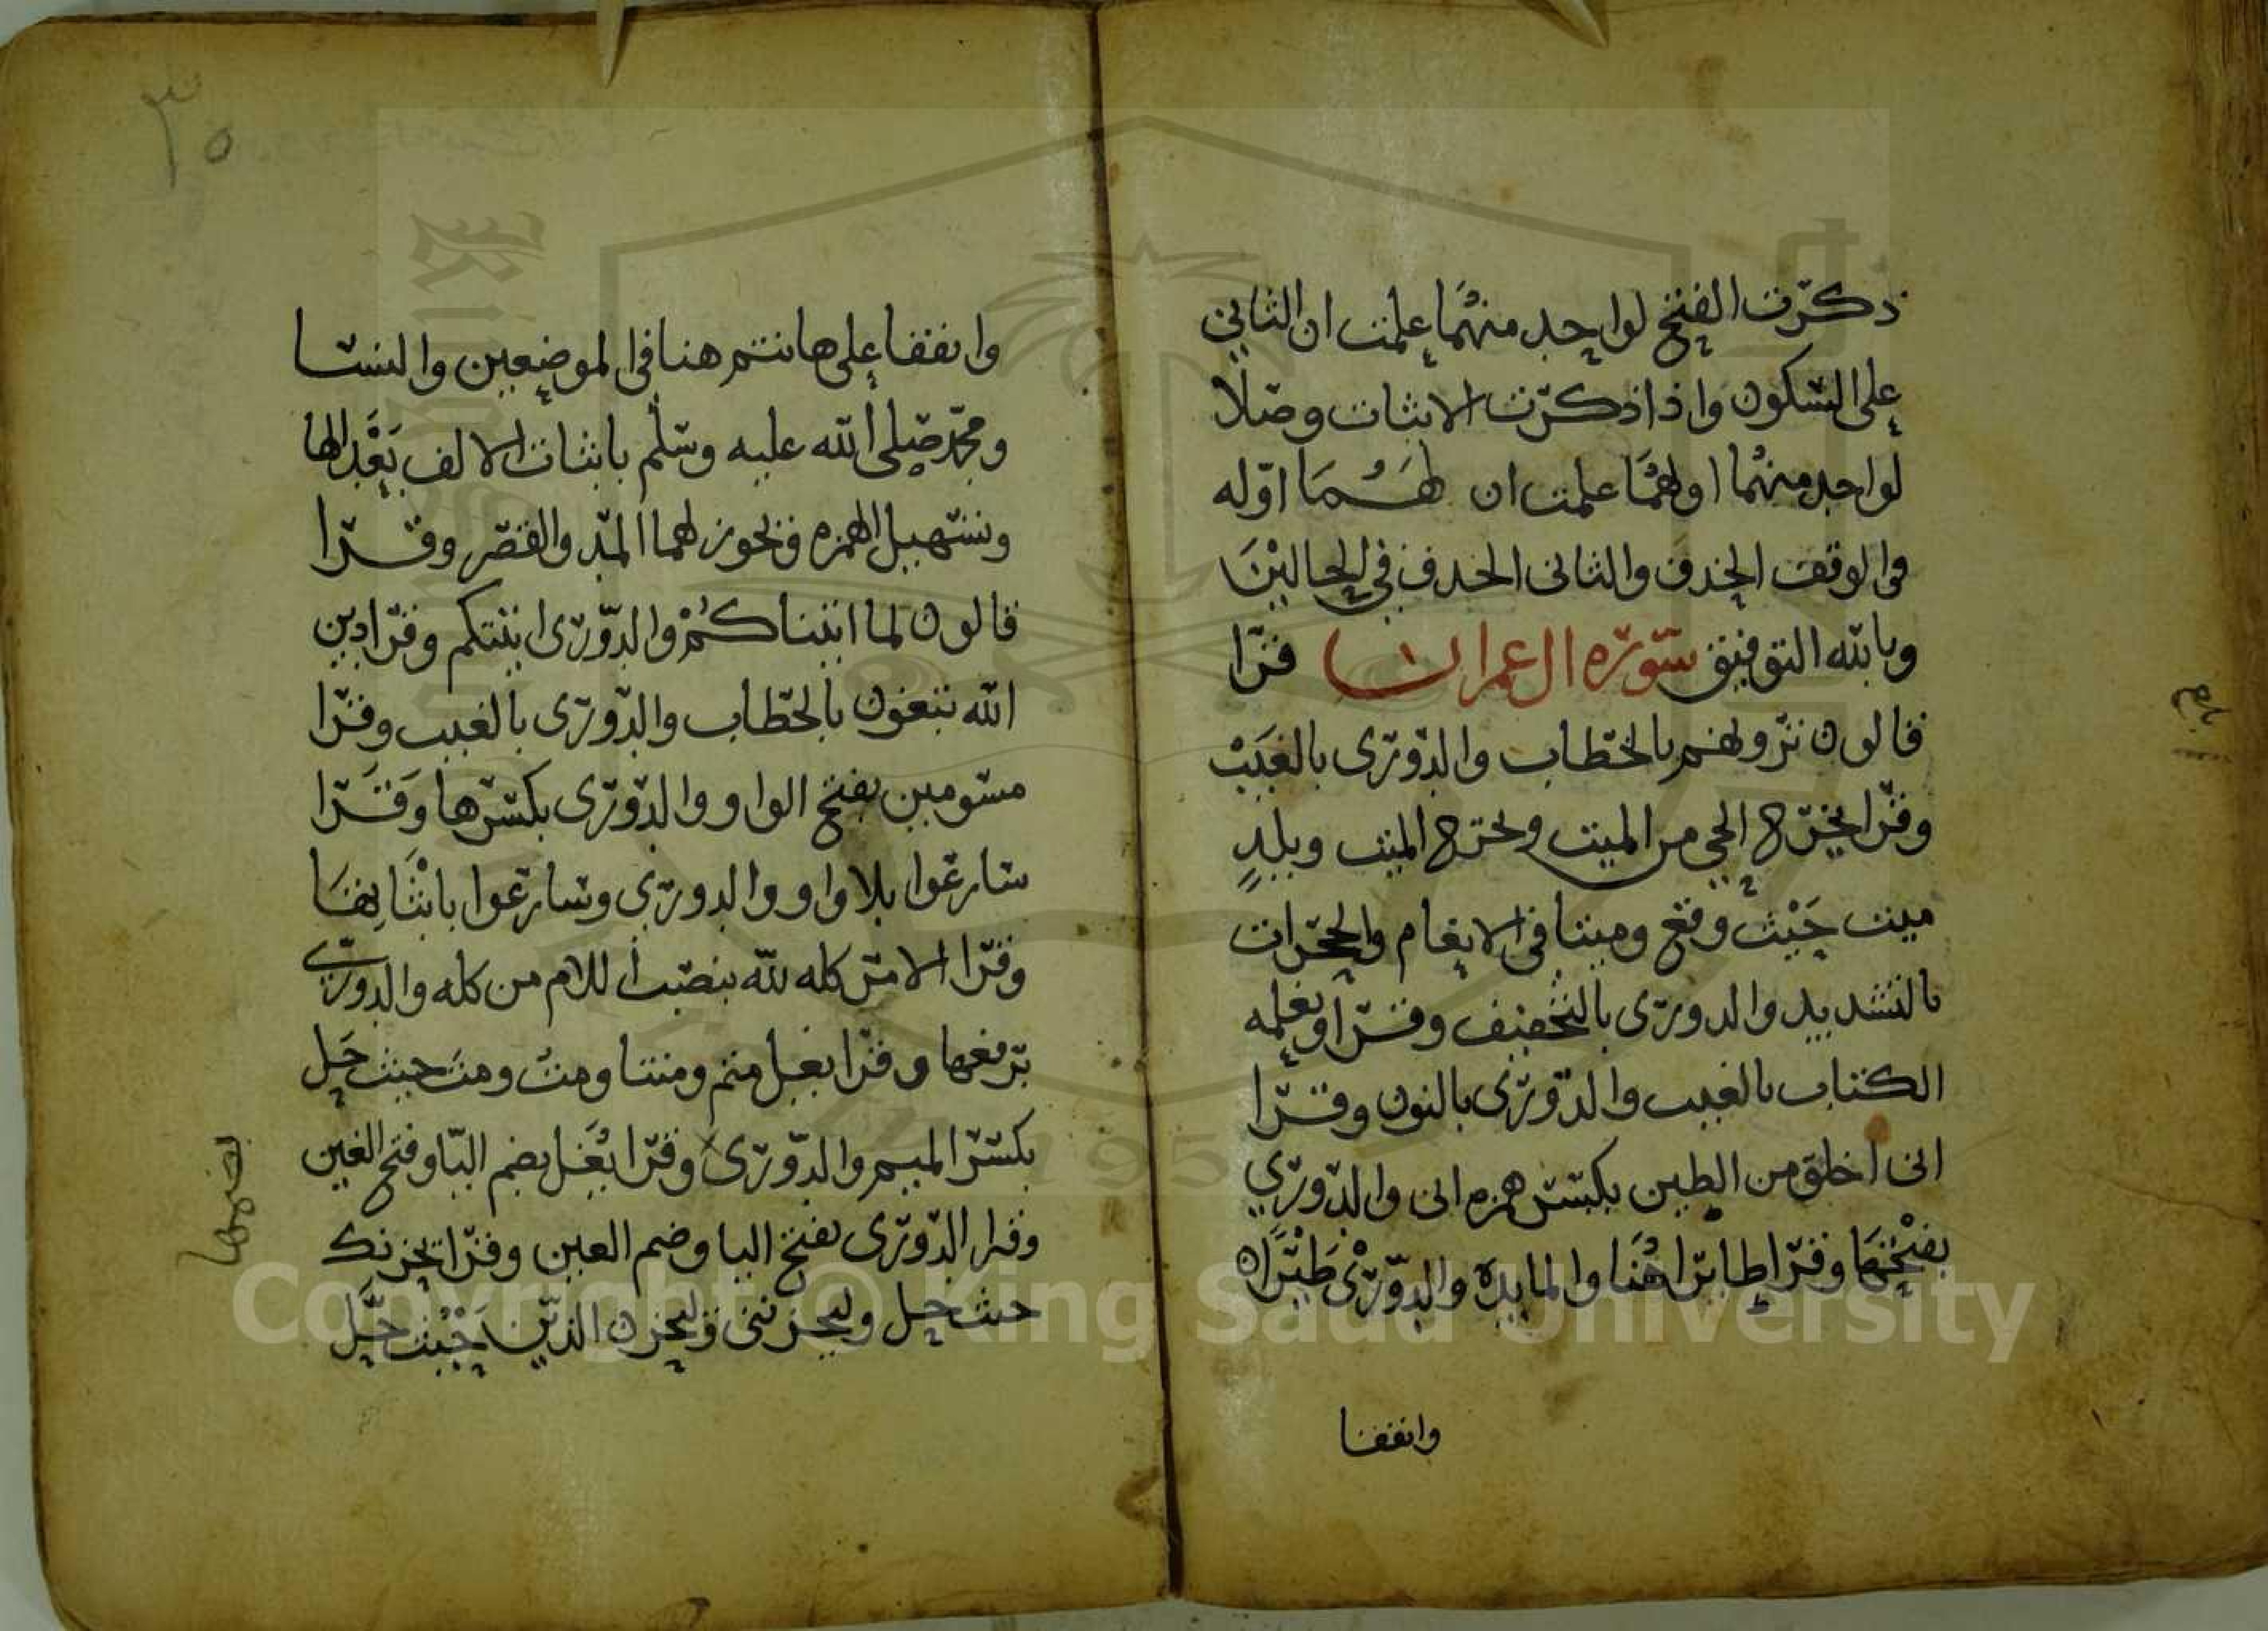 ذكرت الفتح لواحد منهما علمت ان الثاني
على السكون واذا ذكرت الاثبات وصلا
لواحد منهما اولهما علمت ان لهما اوله
في الوقف الحذف والثاني الحذف في الحالين
وبالله التوفيق سورة ال عمران قرا
قالون ترونهم بالخطاب والدوري بالغيب
وقرا يخرج الحي من الميت ويخرج الميت وبلد
ميت حيث وقع وميتا في الانعام والحجرات
بالتشديد والدوري بالتخفيف وقرا ويعلمه
الكتاب بالغيب والدوري بالنون وقرا
اني اخلق من الطين بكسر همزه اني والدوري
بفتحها وقرا طايرا هنا والمايدة والدوري طيرا
واتفقا
٣٥
واتفقا على هانتم هنا في الموضعين والنسا
ومحمد صلى الله عليه وسلم باثبات الالف بعد الها
وتسهيل الهمزه ويجوز لهما المد والقصر وقرا
قالون لما اتيناكم والدوري اتيتكم وقرا دين
الله تبغون بالخطاب والدوري بالغيب وقرا
مسومين بفتح الواو والدوري بكسرها وقرا
سارعوا بلا واو والدوري وسارعوا باثباتها
وقرا الامر كله لله بنصب اللام من كله والدوري
برفعها وقرا يغل متم ومتنا ومت ومت حيث حل
بكسر الميم والدوري وقرا يغل بضم اليا وفتح الغين
وقرا الدوري بفتح اليا وضم الغين وقرا يحزنك
حيث حل وليحزنني وليحزن الذين حيث حل
بضمها
Copyright © King Saud University
195